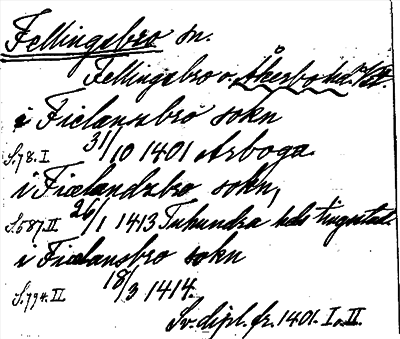 Fellingsbro sn.
Fellingsbro o. Åkerbo hd.
i Fielansbro sokn
S. 78. I 31/10 1401 Arboga.
i Fiælandzbro sokn,
S. 587. II 26/1 1413 Tuhundra hds tingstad.
i Fiælansbro sokn
S. 794. II. 18/3 1414.
Sv. dipl. fr. 1401. I o. II.